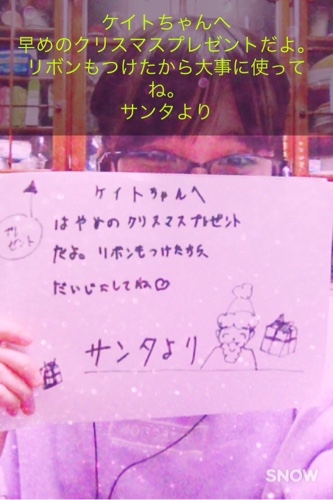 ケイトちゃんへ
早めのクリスマスプレゼントだよ。
リボンもつけたから大事に使って
ね。
サンタより
ケイトちゃんへ
はやめのクリスマスプレゼント
だよ。リボンもつけたから、
だいじにしてね♡
プレ
ゼント
サンタより
SNOW